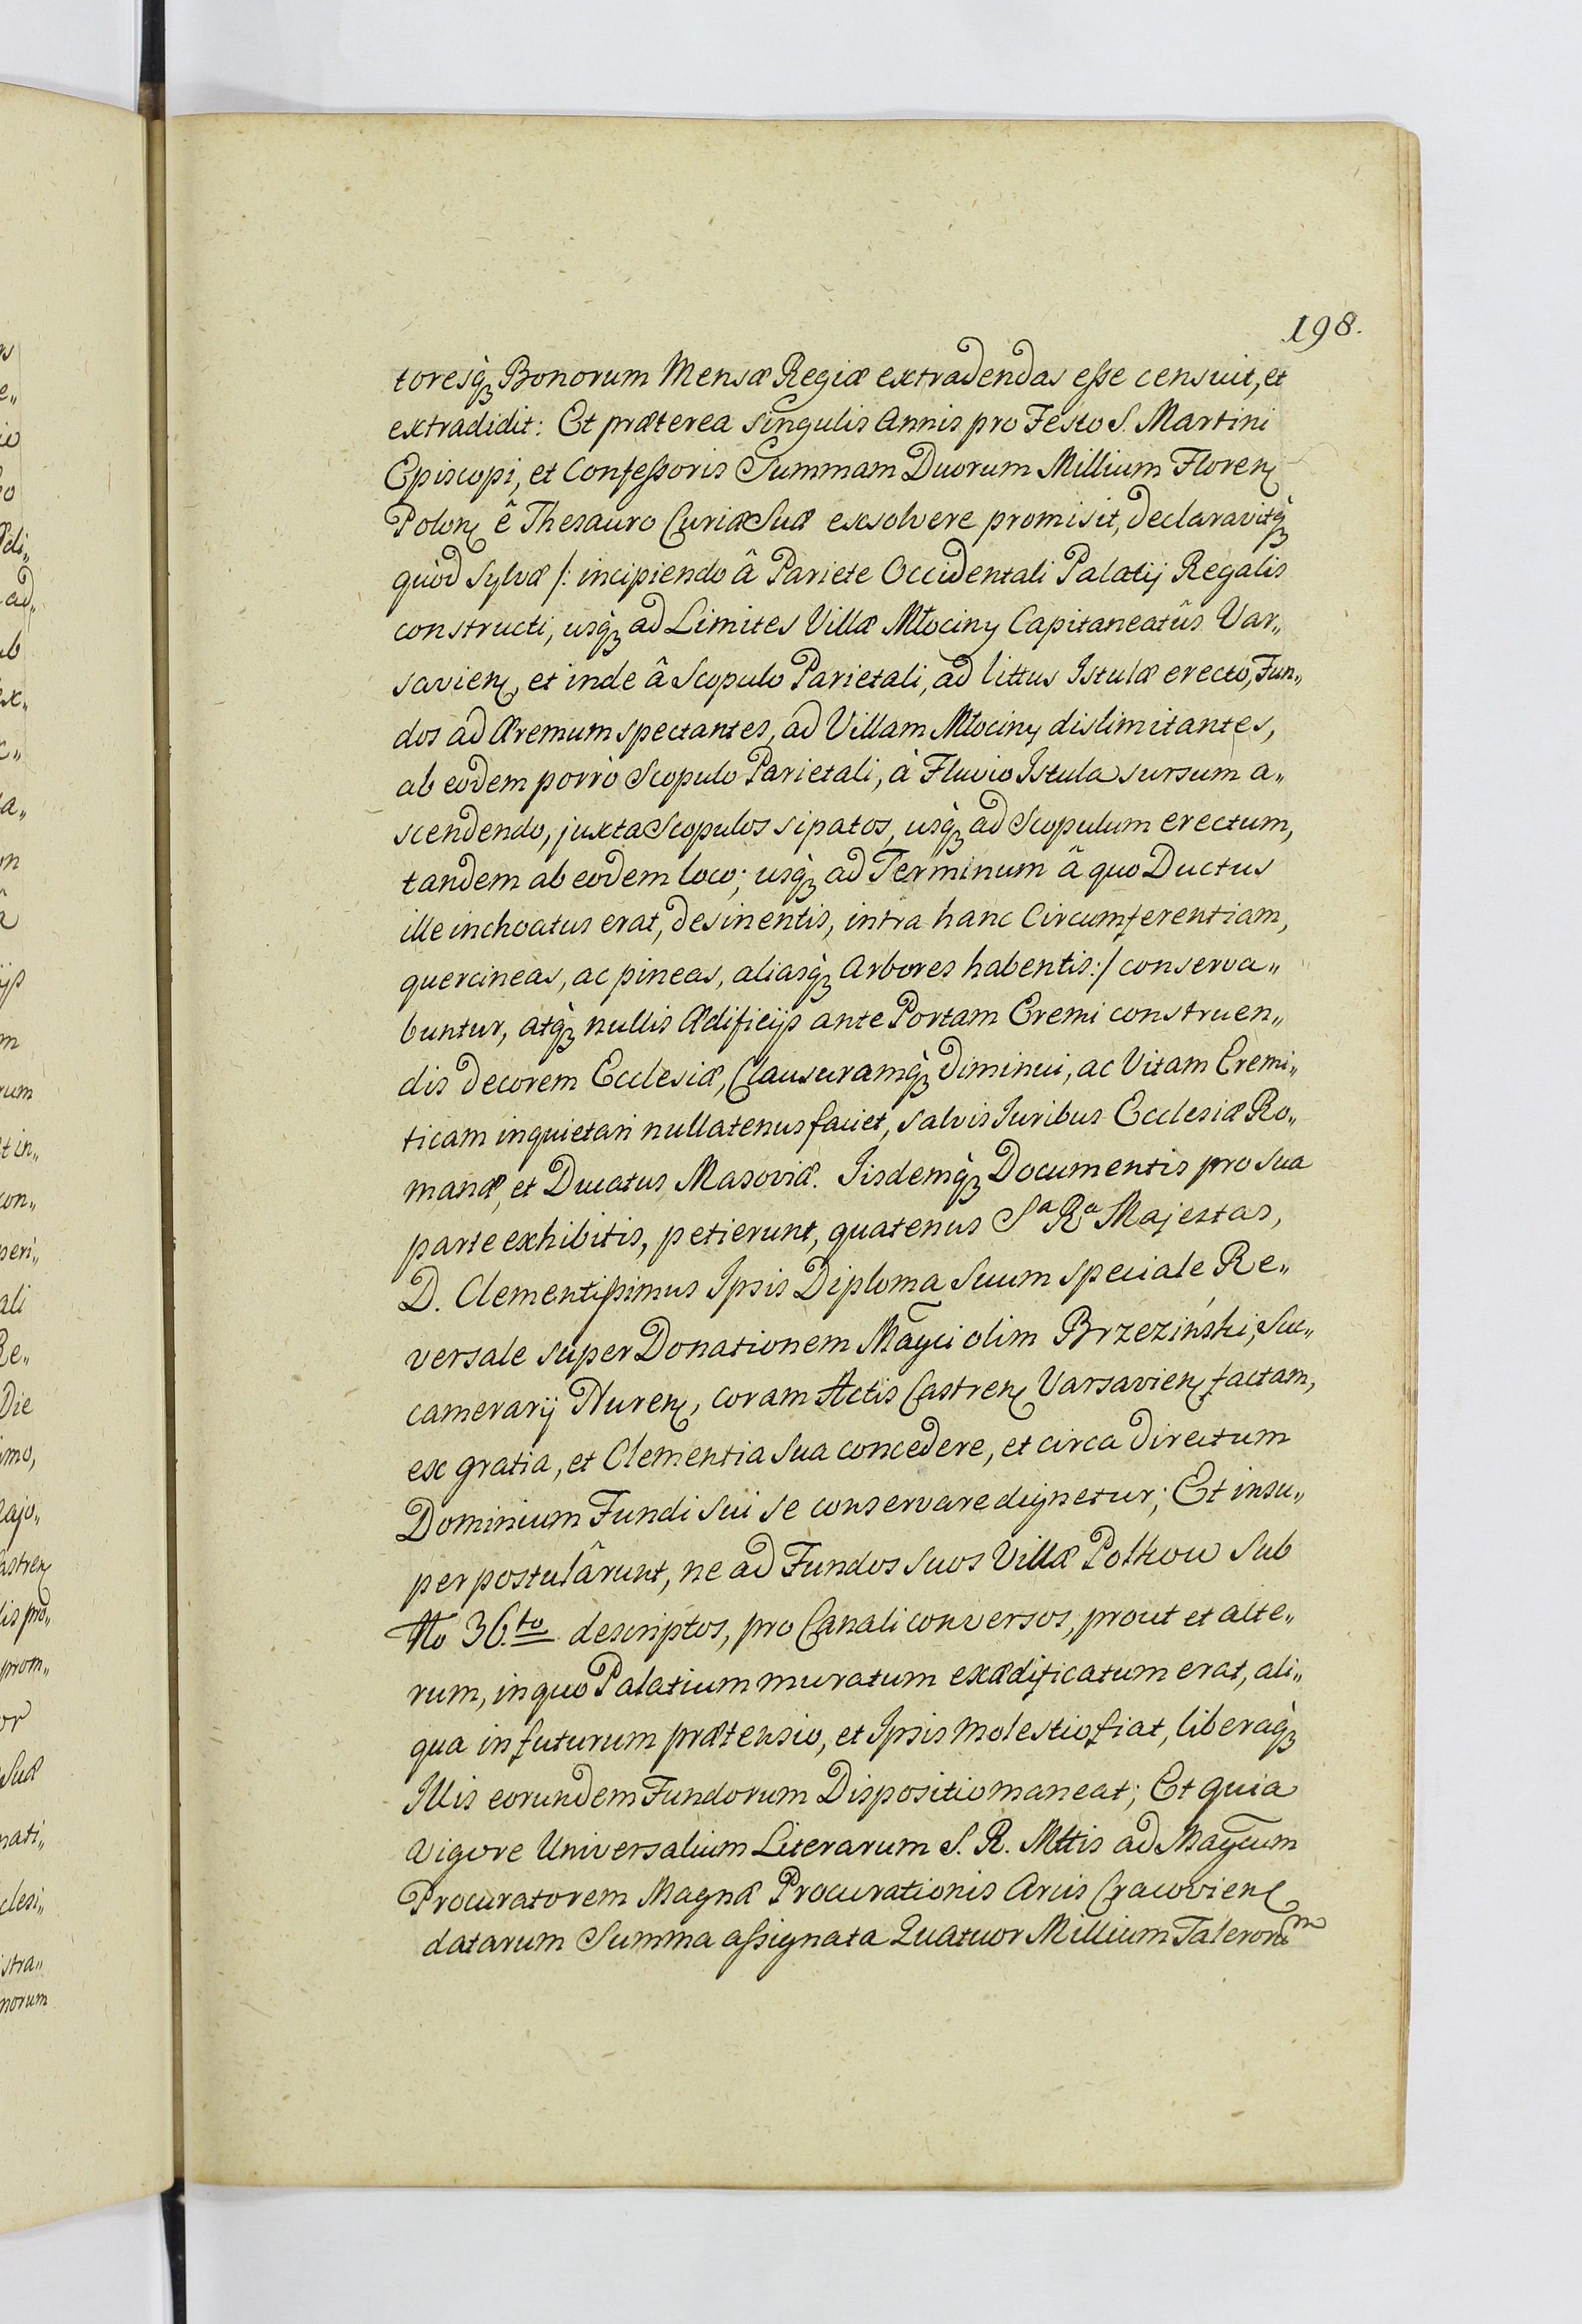 198.
toresq̀ȝ Bonorum Mensæ Regiæ extradendas eße censuit, et
extradidit: Et præterea singulis Annis pro Festo S. Martini
Episcopi, et Confeßoris Summam Duorum Millium Floren
Polon ê Thesauro Curiæ Suæ exsolvere promisit, declaravitq̀ȝ
quòd Sylvæ /: incipiendo â Pariete Occidentali Palatij Regalis
constructi, usq̀ȝ ad Limites Villæ Młociny Capitaneatûs Var„
savien, et inde â Scopulo Parietali, ad littus Istulæ erectô, Fun„
dos ad Æremum spectantes, ad Villam Młociny dislimitantes,
ab eodem porrò Scopulo Parietali, à Fluvio Istula sursum a„
scendendo, juxta Scopulos sipatos, usq̀ȝ ad Scopulum erectum,
tandem ab eodem loco; usq̀ȝ ad Terminum â quo Ductus
ille inchoatus erat, desinentis, intra hanc Circumferentiam,
quercineas, ac pineas, aliasq̀ȝ Arbores habentis :/ conserva„
buntur, atq̀ȝ nullis Ædificijs ante Portam Eremi construen„
dis decorem Ecclesiæ, Clausuramq̀ȝ diminui, ac Vitam Eremi„
ticam inquietari nullatenus faciet, salvis Juribus Ecclesiæ Ro„
manæ, et Ducatus Masoviæ. Iisdemq̀ȝ Documentis pro sua
parte exhibitis, petierunt, quatenus Sᵃ Rᵃ Majestas,
D. Clementißimus Ipsis Diploma Suum speciale Re„
versale super Donationem Magci olim Brzeziński, Suc„
camerarij Nuren, coram Actis Castren Varsavien factam,
ex gratia, et Clementia Sua concedere, et circa directum
Dominium Fundi sui se conservare dignetur; Et insu„
per postulârunt, ne ad Fundos suos Villæ Polkow sub
No 36.to descriptos, pro Canali conversos, prout et alte„
rum, in quo Palatium muratum exædificatum erat, ali„
qua in futurum prætensio, et Ipsis molestio fiat, liberaq̀ȝ
Illis eorundem Fundorum Dispositio maneat; Et quia
vigore Universalium Literarum S. R. Mttis ad Magcum
Procuratorem Magnæ Procurationis Arcis Cracovien
datarum Summa aßignata Quatuor Millium Talerorum